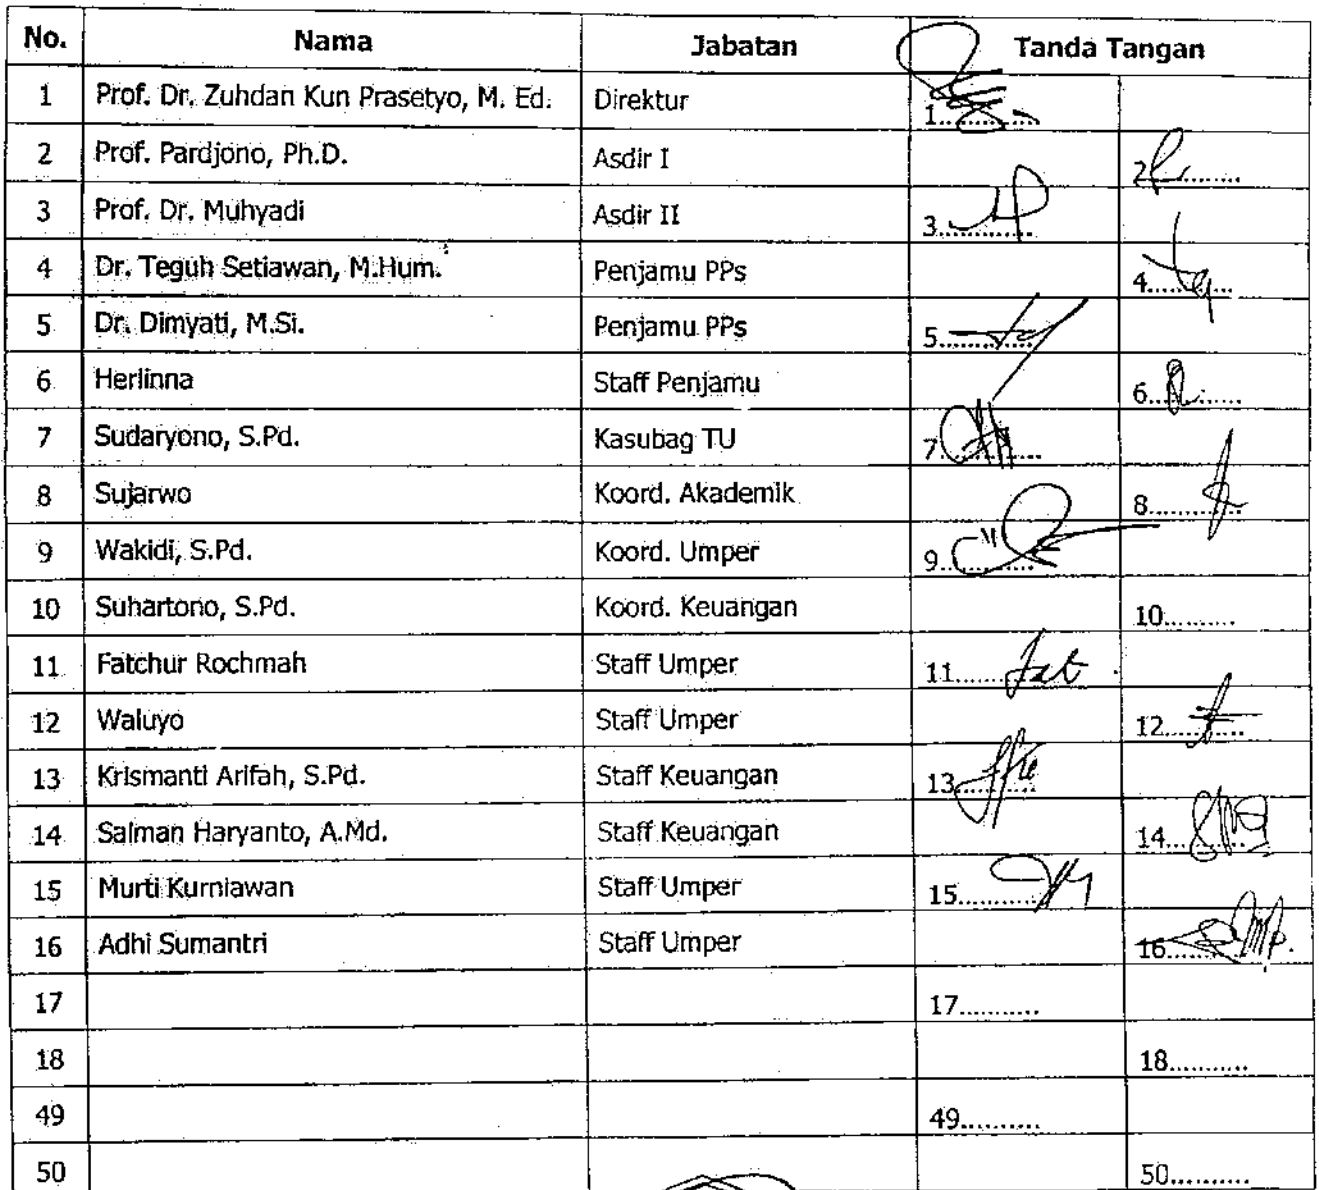 No. Nama Jabatan Tanda Tangan
1 Prof. Dr. Zuhdan Kun Prasetyo, M. Ed. Direktur 1..............
2 Prof. Pardjono, Ph.D. Asdir I 2..............
3 Prof. Dr. Muhyadi Asdir II 3..............
4 Dr. Teguh Setiawan, M.Hum. Penjamu PPs 4............
5 Dr. Dimyati, M.Si. Penjamu PPs 5..............
6 Herlinna Staff Penjamu 6..............
7 Sudaryono, S.Pd. Kasubag TU 7..............
8 Sujarwo Koord. Akademik 8..............
9 Wakidi, S.Pd. Koord. Umper 9..............
10 Suhartono, S.Pd. Koord. Keuangan 10..........
11 Fatchur Rochmah Staff Umper 11.......
12 Waluyo Staff Umper 12............
13 Krismanti Arifah, S.Pd. Staff Keuangan 13............
14 Salman Haryanto, A.Md. Staff Keuangan 14............
15 Murti Kurniawan Staff Umper 15............
16 Adhi Sumantri Staff Umper 16............
17 17...........
18 18...........
49 49...........
50 50...........